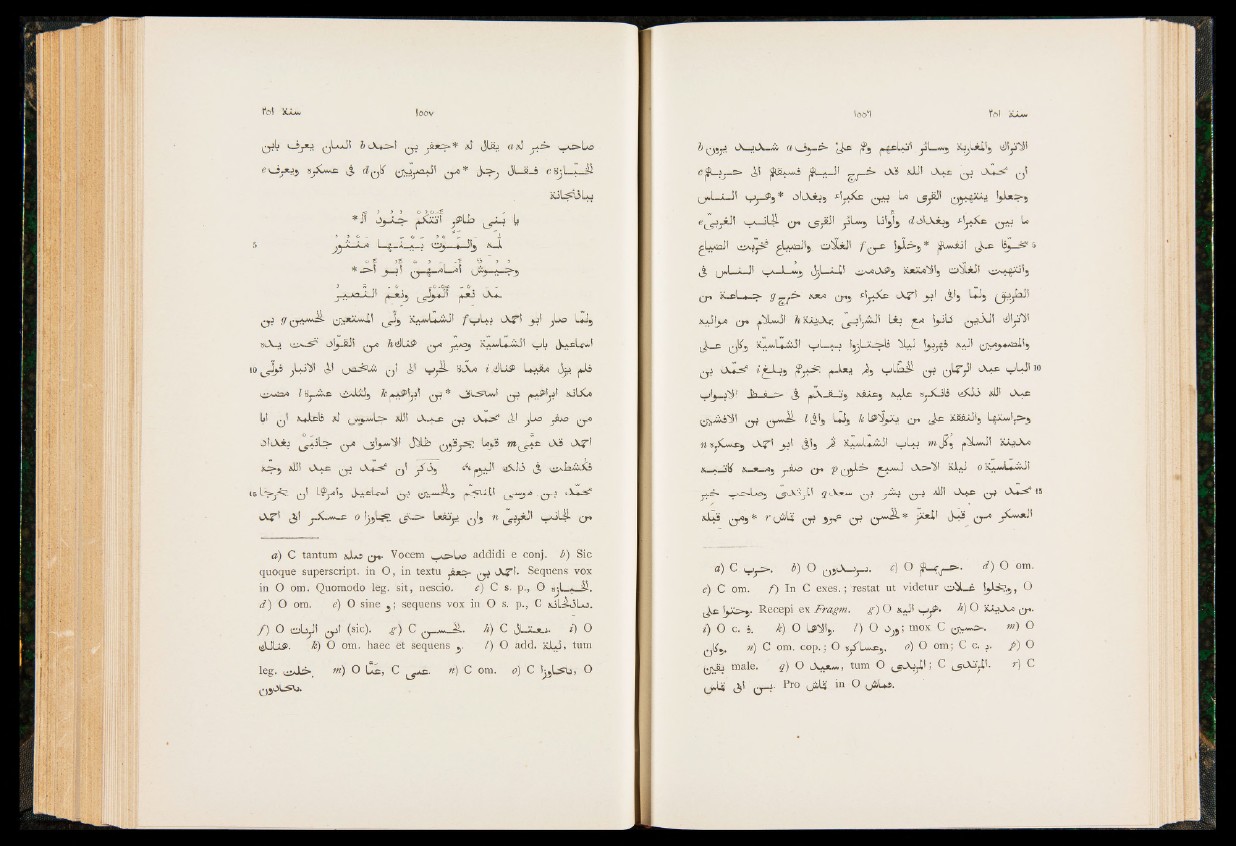 سنة ٢٥١ ١٥٥٦
الاتراك والمغاربة وسائر اتباعهم وهم على خوف a شديد يرون b
ان محمد بن عبد الله قد خرج اليهم فسبقهم الى حربهم c
وجعلوا ينتهبون القرى ما بين عكبراء وبغداد * وهرب الناس
ما بين عكبراء وبغداد d واوانا وسائر القرى من الجانب الغربى e
5 تخوّفا على انفسهم * وخلوا عن f الغلّات والضياع فخربت الضياع
وانتهبت الغلّات والامتعة وهدمت المنازل وسلب الناس فى
الطريق ولما وافى ابو احمد عكبراء ومن معه خرج g جماعة من
الاتراك الذين كانوا مع بغا الشرابى بمدينة h السلام من مواليه
والمضمومين اليه فهربوا ليلا فاجتازوا بباب الشماسية وكان على
10 الباب عبد الرحمان بن الخطاب ولم يعلم بخبرهم وبلغ i محمد بن
عبد الله ذلك فانكره عليه وعنفه وتقدّم فى حفظ الابواب
وحراستها والنفقة على من يتولاها k ولما وافى l الحسن بن الافشين
مدينة السلام وكّل m بباب الشماسية ثم وافى ابو احمد وعسكره n
الشماسية o ليلة الاحد لسبع خلون p من صفر ومعه كاتبه
15 محمد بن عبد الله بن بشر بن سعد q المرثدى وصاحب خبر
العسكر من قبل المعتز * الحسن بن عمرو بن قماش r * ومن قبله
a) C حرب. b) O d) O om.
e) C om. f) In C exes.; restat ut videtur O
Recepi ex Fragm. g) O h) O من مدينة.
i) O c. k) O l) O mox C حسين. m) O
وكان. n) C om. cop.; O o) O om; C c. p) O
بقين male. q) O سعيد, tum O C r) C
Pro قماش in O
سنة ٢٥١ ١٥٥٧
صاحب خبر له a يقال له * جعفر بن احمد b البنان يعرف بابن
الخبازة c فقال رجل * من البصريين كان d فى عسكره ويعرف e
بباذنجانة
يا بنى طاهر أتتكم جنود الـ*
5 ـله والموت بينها منثور
وجيوش أمامهن أبو أحـ*
ـمد نعم المولى ونعم النصير
ولما صار ابو احمد بباب f الشماسية ولّى المستعين الحسين g بن
اسماعيل باب الشماسية وصيّر من هناك h من القوّاد تحت يده
10 فلم يزل مقيما هناك i مدة الحرب الى ان شخص الى الانبار فولّى
مكانه ابراهيم بن اسحاق * بن ابراهيم k ولثلث عشرة l مضت
من صفر صار الى محمد بن عبد الله جاسوس له فاعلمه ان ابا
احمد قد عبّى m قوما يحرقون ظلال الاسواق من جانبى بغداد
فكشطت فى ذلك اليوم، وذكر ان محمد بن عبد الله وجّه
15 محمد بن موسى المنجم والحسين بن اسماعيل وامرهما ان يخرجا
من الجانب الغربى n وان يرتفعا حتى يجاوزا o عسكر ابى احمد
a) C tantum من قبله. Vocem صاحب addidi e conj. b) Sic
quoque superscript. in O, in textu احمد بن جعفر. Sequens vox
in O om. Quomodo leg. sit, nescio. c) C s. p., O
d) O om. e) O sine و; sequens vox in O s. p., C
f) O (sic). g) C الحسن. h) C i) O
هنالك. k) O om. haec et sequens و. l) O add. ليلة, tum
leg. خلت. m) O C n) C om. o) C O